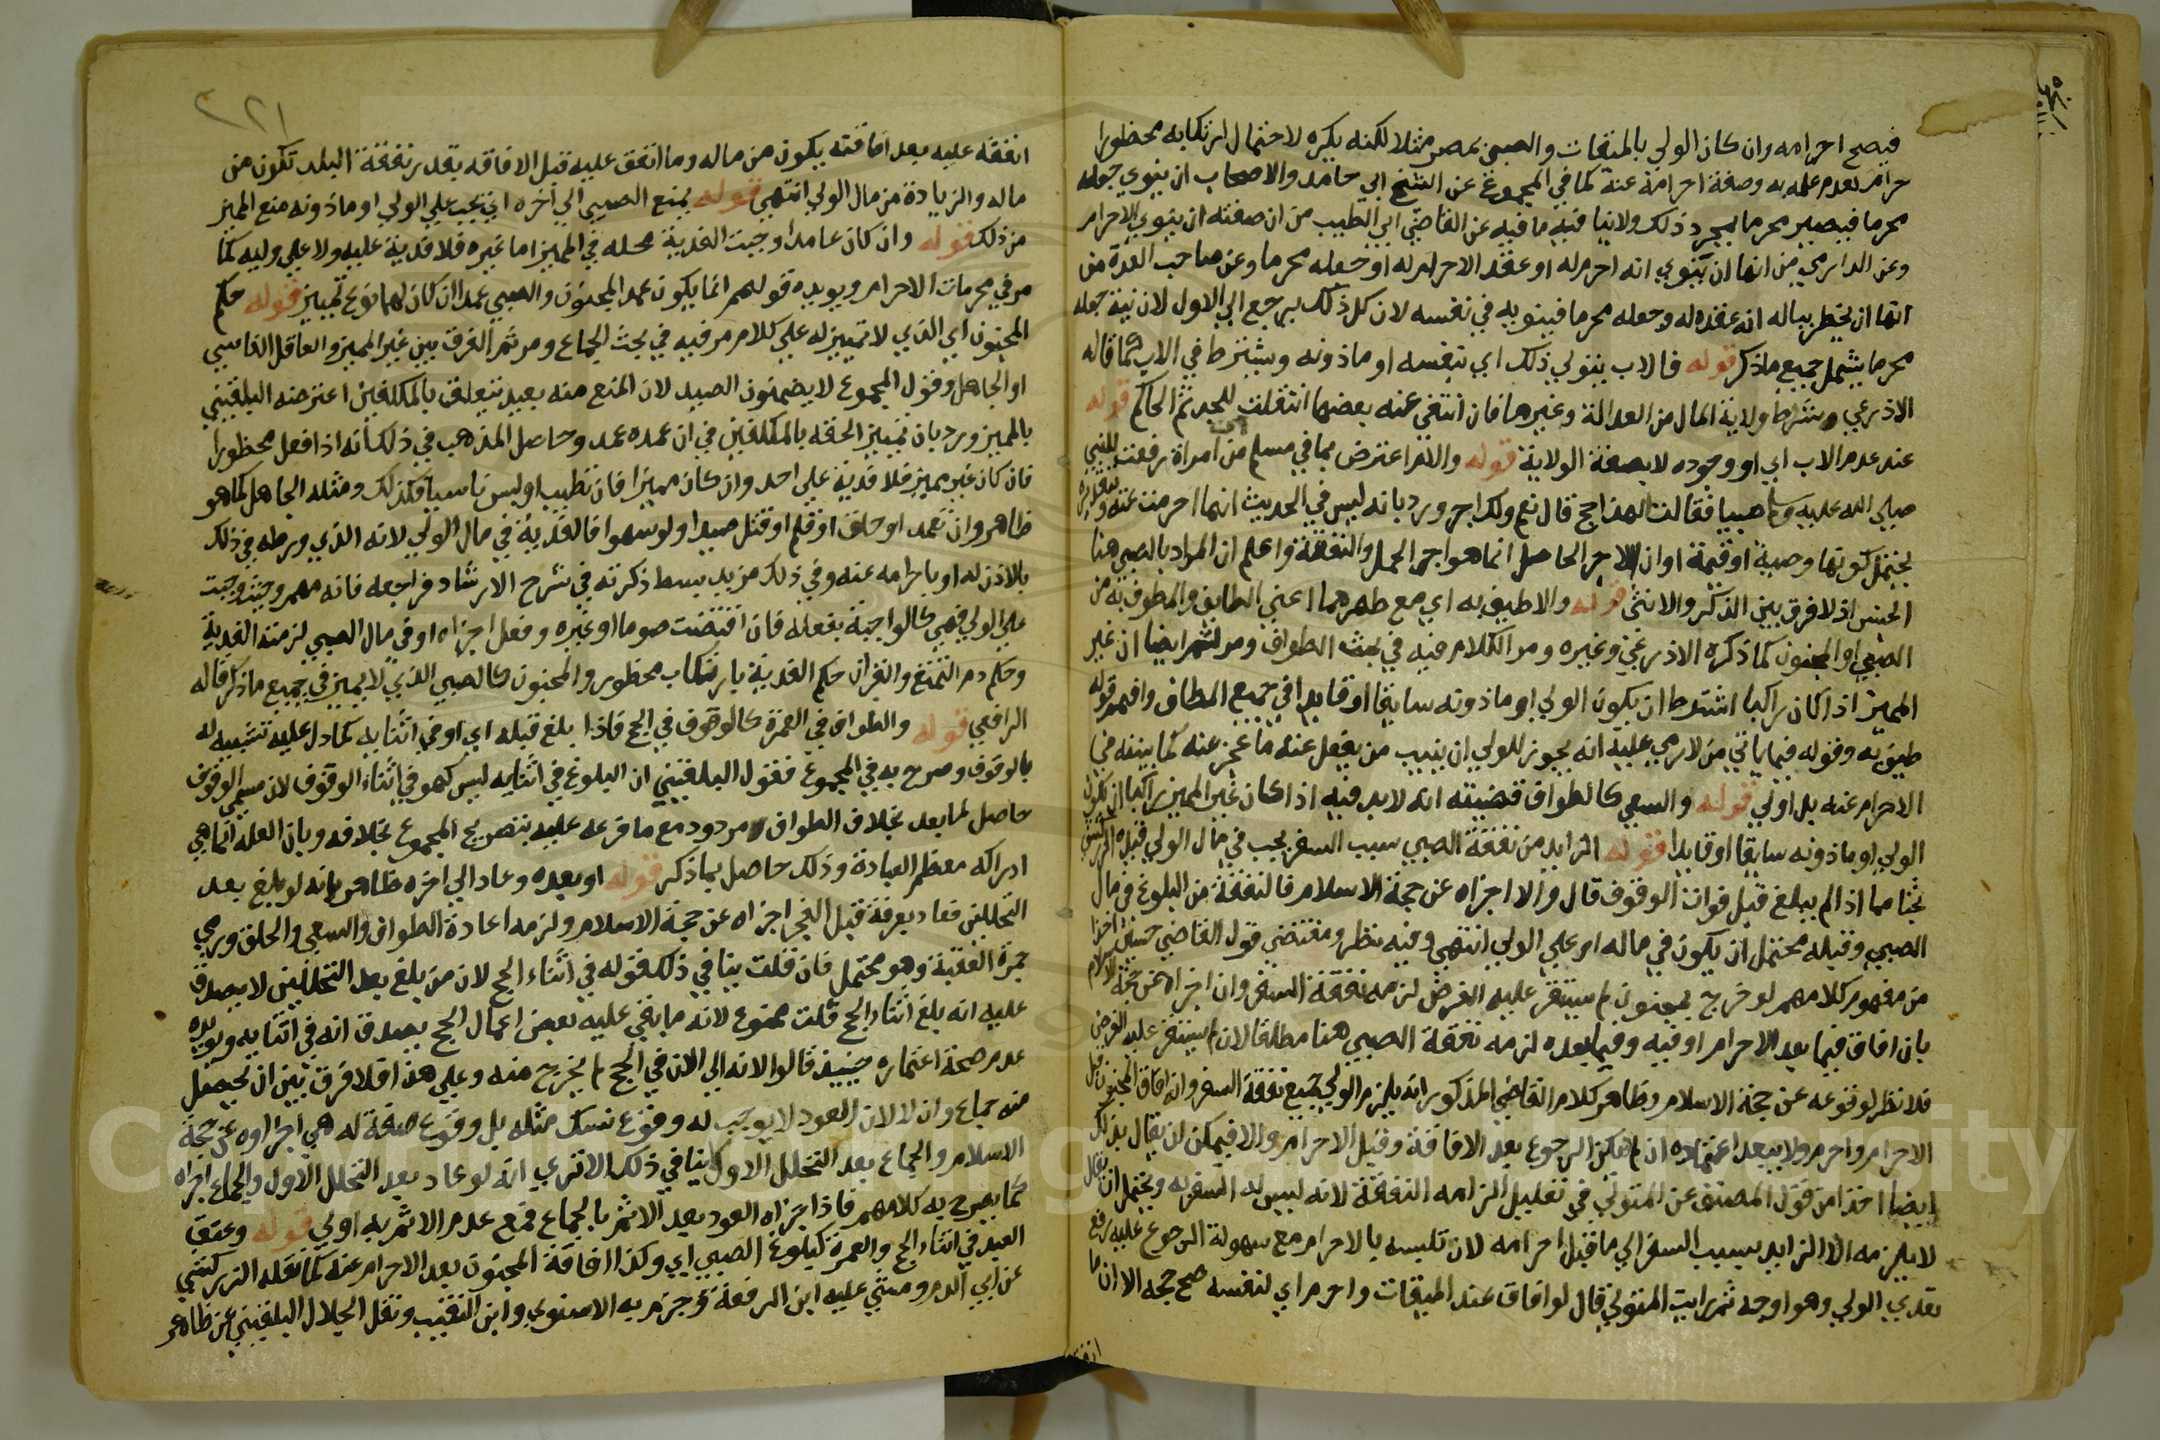 فيصح احرامه وان كان الولي بالميقات والصبي بمصر مثلا لكنه يكره لاحتمال ارتكابه محظورا
حرام لعدم علمه به وصفة احرامه عنه كما في المجموع عن الشيخ ابي حامد والاصحاب ان ينوي جعله
محرما فيصير محرما بمجرد ذلك ولاينا فيه ما فيه عن القاضي ابي الطيب من ان صفته ان ينوي الاحرام
وعن الدارمي من انها ان ينوي انه احرم له او عقد الاحرام له او جعله محرما وعن صاحب العدة من
انها ان يخطر بباله انه عقده له وجعله محرما فينويه في نفسه لان كل ذلك يرجع الي الاول لان نية جعله
محرما يشمل جميع ماذكر قوله فالاب يتولي ذلك اي بنفسه او ماذونه ويشترط في الاب كما قاله
الاذرعي شرط ولاية المال من العدالة وغيرها فان انتفي عنه بعضها انتقلت للجد ثم الحاكم قوله
عند عدم الاب اي او وجوده لا بصفة الولاية قوله والام اعترض بما في مسلم من امراة رفعت للنبي
صلي الله عليه وسلم صبيا فقالت الهذا حج قال نعم ولك اجر ورد بانه ليس في الحديث انها احرمت عنه
يحتمل كونها وصية او قيمة او ان الاجر الحاصل انما هو اجر الحمل والنفقة واعلم ان المراد بالصبي هنا
الجنس اذ لا فرق بين الذكر والانثي قوله والا طيف به اي مع طهرهما اعني الطايف والمطوف به من
الصبي او المجنون كما ذكره الاذرعي وغيره ومر الكلام فيه في بحث الطواف ومر ثم ايضا ان غير
المميز اذا كان راكبا اشترط ان يكون الولي او ماذونه سايقا او قايدا في جميع المطاف وافهم قوله
طيف به وقوله فيما ياتي من لا رمي عليه انه يجوز للولي ان ينيب من يفعل عنه ما عجز عنه كما ينيبه في
الاحرام عنه بل اولي قوله والسعي كالطواف قضيته انه لا بد فيه اذا كان غير المميز راكبا ان يكون
الولي او ماذونه سايقا او قايدا قوله الزايد من نفقة الصبي سبب السفر يجب في مال الولي قيده الزركشي
بحثا مما اذا لم يبلغ قبل فوات الوقوف قال والا اجزاه عن حجة الاسلام فالنفقة من البلوغ في مال
الصبي وقبله محتمل ان يكون في ماله ام علي الولي انتهي وفيه نظر ومقتضي قول القاضي حسين اخذا
من مفهوم كلامهم لو خرج بمجنون لم يستقر عليه الفرض لزمه نفقة السفر وان اجزاه عن حجة الاسلام
بان افاق فيما بعد الاحرام او فيه وفيما بعده لزمه نفقة الصبي هنا مطلقا لان لم يستقر عليه الفرض
فلا نظر لوقوعه عن حجة الاسلام وظاهر كلام القاضي المذكور انه يلزم الولي جميع نفقة السفر وان افاق المجنون قبل
الاحرام واحرم ولا يبعد اعتماده ان لم يمكن الرجوع بعد الافاقة وقبل الاحرام والا فيمكن ان يقال بذلك
ايضا اخذا من قول المصنف عن المتولي في تعليل الزامه النفقة لانه ليس له السفر به ويحتمل ان يقال
لا يلزمه الا الزايد بسبب السفر الي ما قبل احرامه لان تلبسه بالاحرام مع سهولة الرجوع عليه رفع
تعدي الولي وهو اوجه ثم رايت المتولي قال لو افاق عند الميقات واحرم اي لنفسه صح حجه الا ان ما
انفقه
٢٢١
انفقه عليه بعد افاقته يكون من ماله وما انفق عليه قبل الافاقه بقدر نفقة البلد تكون من
ماله والزيادة من مال الولي انتهي قوله يمنع الصبي الي اخره اي يجب علي الولي او ماذونه منع المميز
من ذلك قوله وان كان عامدا وجبت الفدية محله في المميز اما غيره فلا فدية عليه ولا علي وليه كما
مر في محرمات الاحرام ويويده قولهم انما يكون عمد المجنون والصبي عمدا ان كان لهما نوع تمييز قوله حكم
المجنون اي الذي لا تمييز له علي كلام مر فيه في بحث الجماع ومر ثم الفرق بين غير المميز والعاقل الناسي
او الجاهل وقول المجموع لا يضمنون الصيد لان المنع منه تعبد يتعلق بالمكلفين اعترضه البلقيني
بالمميز ورد بان تمييز الحقه بالمكلفين في ان عمده عمد وحاصل المذهب في ذلك انه اذا فعل محظورا
فان كان غير مميز فلا فدية علي احد وان كان مميزا فان تطيب او لبس ناسيا فكذلك ومثله الجاهل كما هو
ظاهر وان تعمد او حلق او قلم او قتل صيدا ولو سهوا فالفدية في مال الولي لانه الذي ورطه في ذلك
بالاذن له او باحرامه عنه وفي ذلك مزيد بسط ذكرته في شرح الارشاد فراجعه فانه مهم وحيث وجبت
علي الولي فهي كالواجبة بفعله فان اقتضت صوما او غيره وفعل اجزاه او في مال الصبي لزمته الفدية
وحكم دم التمتع والقران حكم الفدية بارتكاب محظور والمجنون كالصبي الذي لا يميز في جميع ماذكر قاله
الرافعي قوله والطواف في العمرة كالوقوف في الحج فاذا بلغ قبله اي او في اثنايه كما دل عليه تشبيهه له
بالوقوف وصرح به في المجموع فقول البلقيني ان البلوغ في اثنايه ليس كهو في اثناء الوقوف لان مسمي الوقوف
حاصل لما بعد بخلاف الطواف مردود مع ما فرعه عليه بتصريح المجموع بخلافه وبان العلة انما هي
ادراكه معظم العبادة وذلك حاصل بما ذكر قوله او بعده وعاد الي اخره ظاهره انه لو بلغ بعد
التحللين فعاد بعرفة قبل الفجر اجزاه عن حجة الاسلام ولزمه اعادة الطواف والسعي والحلق ورمي
جمرة العقبة وهو محتمل فان قلت ينافي ذلك قوله في اثناء الحج لان من بلغ بعد التحللين لا يصدق
عليه انه بلغ اثناء الحج قلت ممنوع لانه ما بقي عليه بعض اعمال الحج يصدق انه في اثنايه ويويده
عدم صحة اعتماره حينيذ قالوا لانه الي الان في الحج لم يخرج منه وعلي هذا فلا فرق بين ان يحصل
منه جماع وان لا لان العود لا يوجب له وقوع نسك مثله بل وقوع صفة له هي اجزاوه عن حجة
الاسلام والجماع بعد التحلل الاول لا ينافي ذلك الا تري انه لو عاد بعد التحلل الاول والجماع اجزاه
كما يصرح به كلامهم فاذا اجزاه العود بعد الاثم بالجماع فمع عدم الاثم به اولي قوله وعتق
العبد في اثناء الحج والعمرة كبلوغ الصبي اي وكذا افاقة المجنون بعد الاحرام عنه كما نقله الزركشي
عن ابي الدم ومشي عليه ابن الرفعة وجزم به الاسنوي وابن النقيب ونقل الجلال البلقيني عن ظاهر